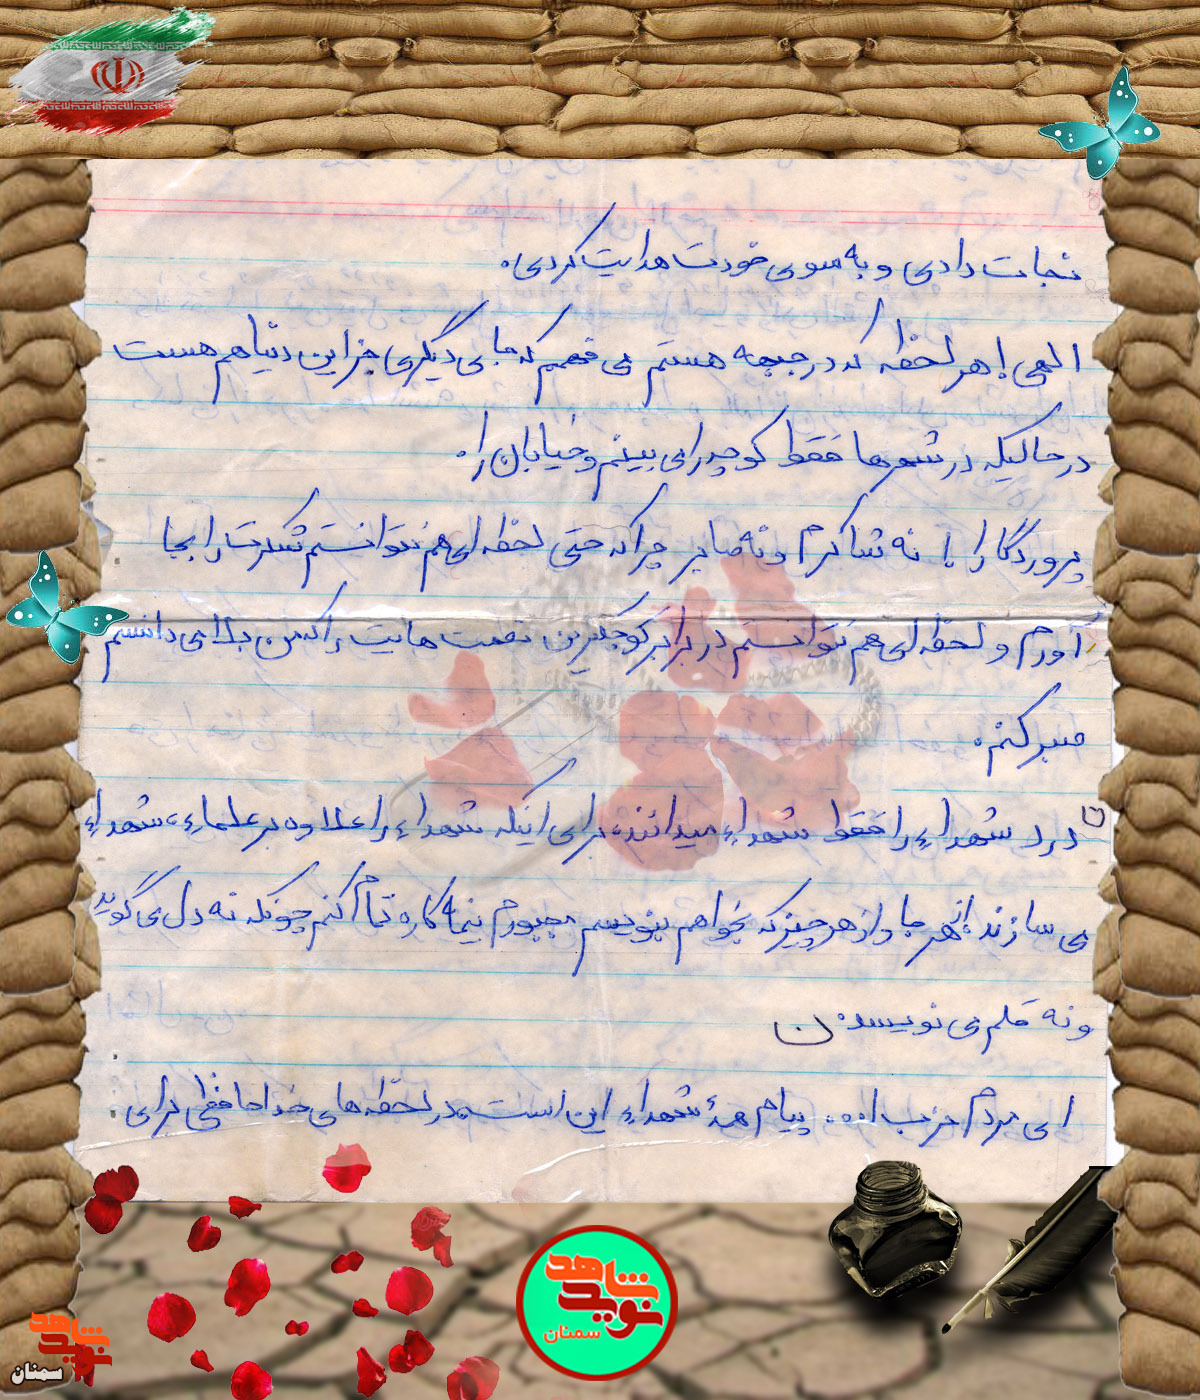 نجات دادی و به سوی خودت هدایت کردی.
الهی! هر لحظه که در جبهه هستم می فهمم که جای دیگری جز این دنیا هم هست
در حالیکه در شهرها فقط کوچه را می بینم و خیابان را.
پروردگارا! نه شاکرم و نه صابر چرا که حتی لحظه ای هم نتوانستم شکرت را بجا
آورم و لحظه ای هم نتوانستم در برابر کوچکترین نعمت هایت را که من بلا می دانستم
صبر کنم.
درد شهداء را فقط شهداء میدانند. برای اینکه شهداء را علاوه بر علماء، شهداء
می سازند از هر جا و از هر چیز که بخواهم بنویسم مجبورم نیمه کاره تمام کنم چونکه نه دل می گوید
و نه قلم می نویسد.
ای مردم حزب ا... پیام همۀ شهداء این است. در لحظه های خداحافظی برای
شاهد
نوید
سمنان
شاهد
نوید
سمنان